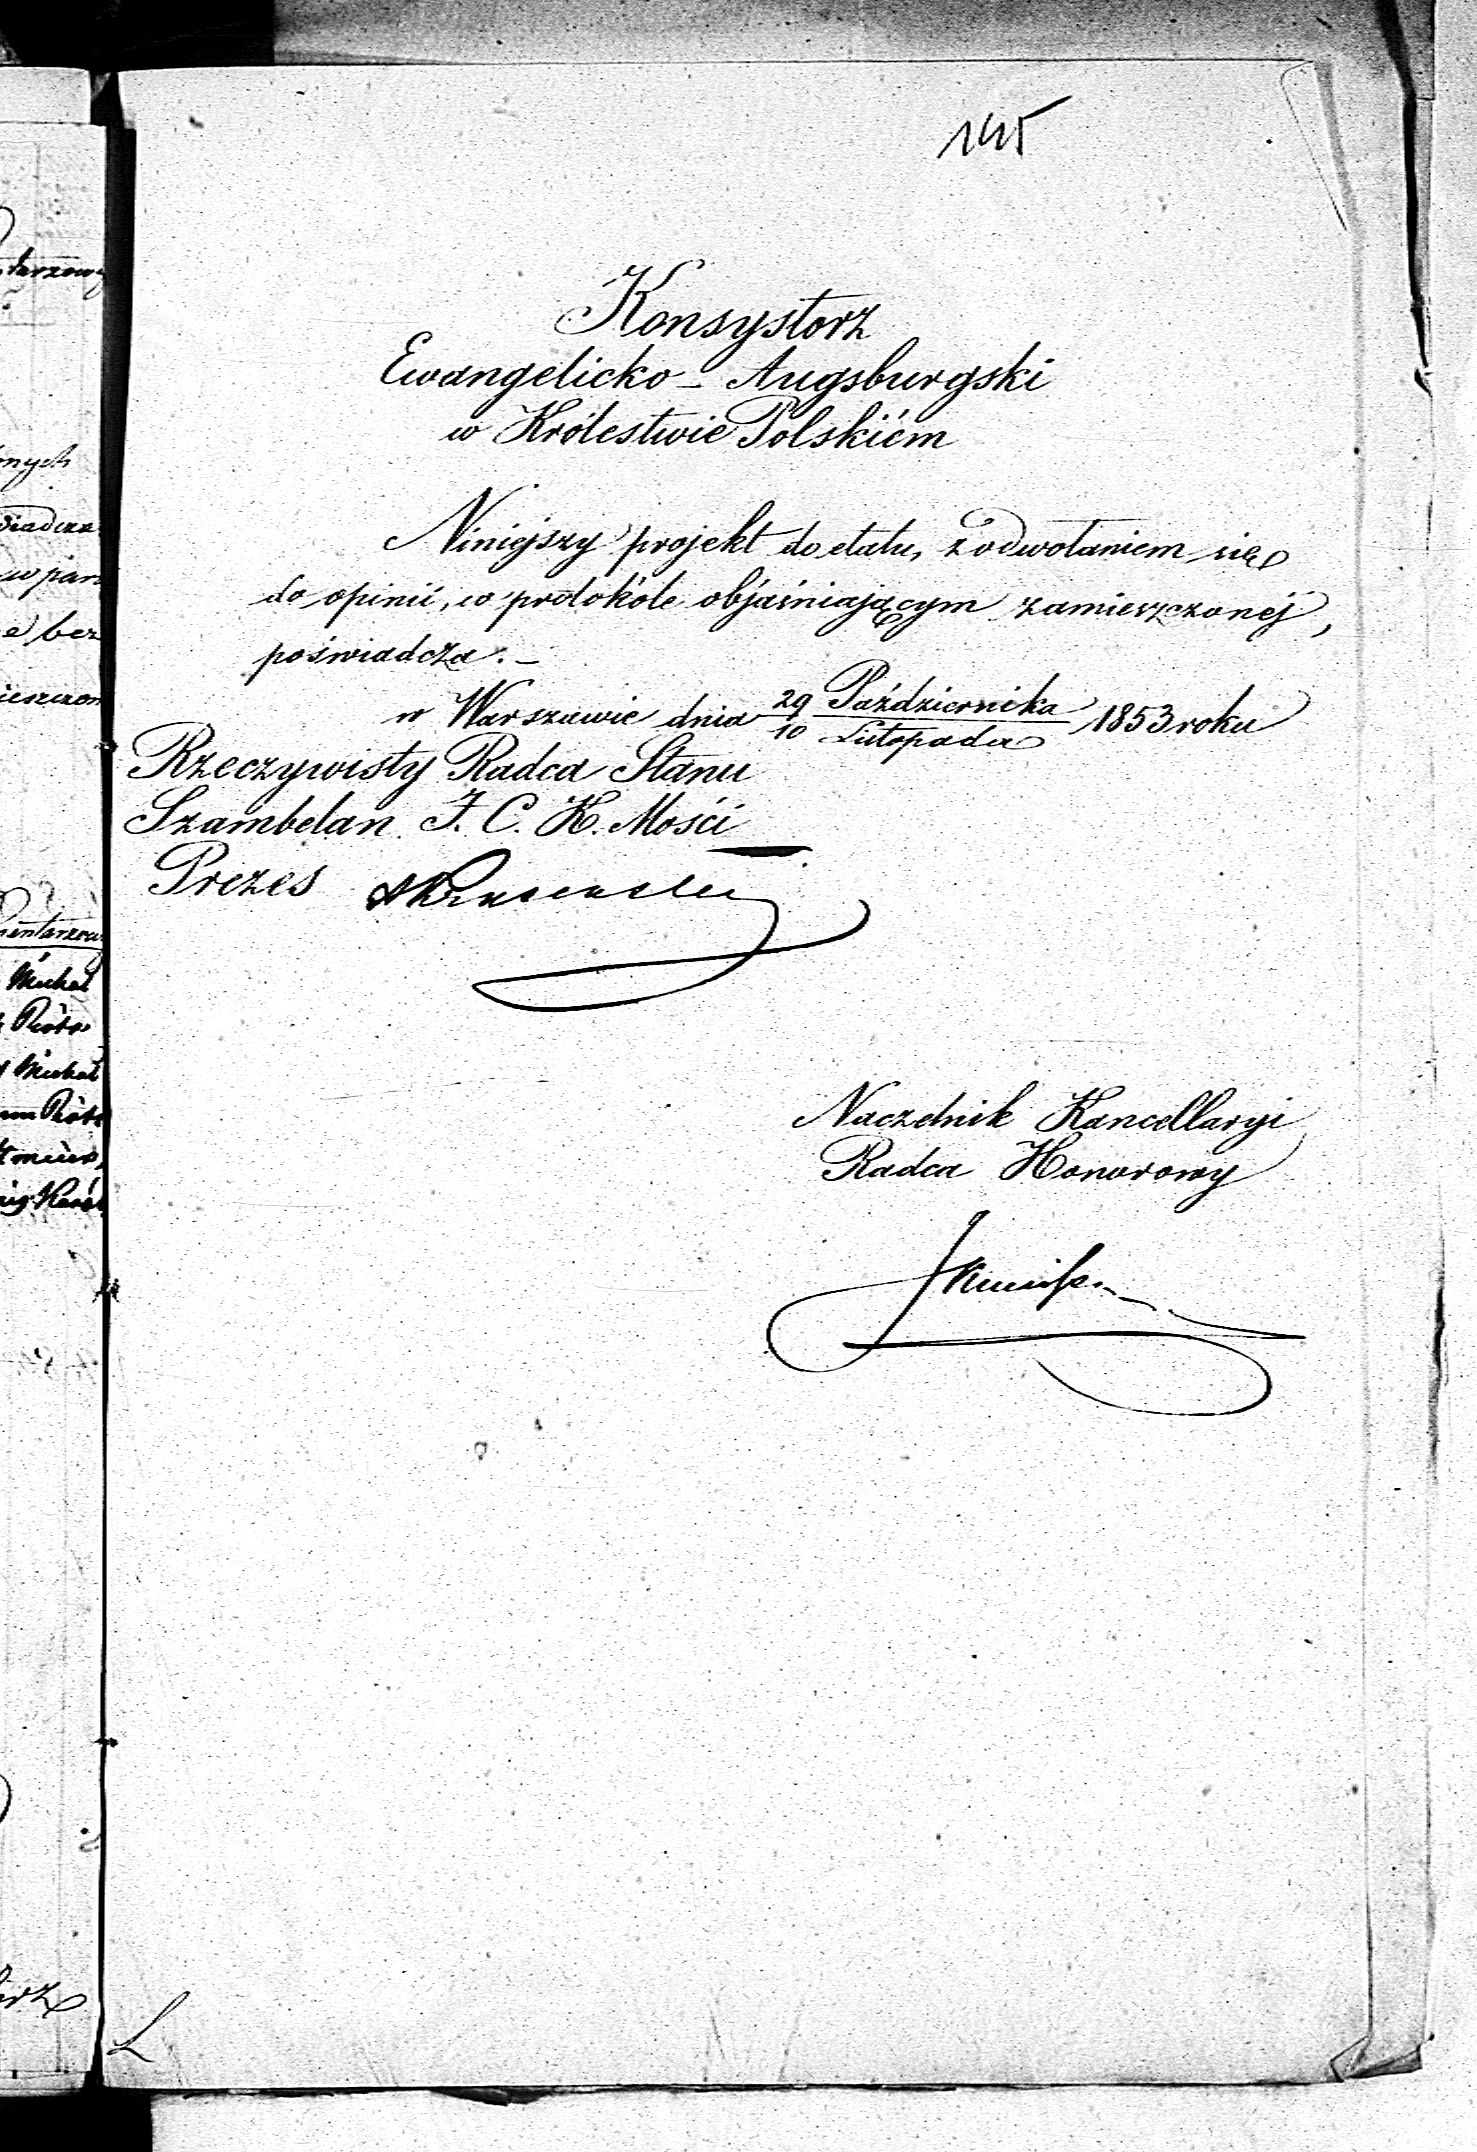 145
Konsystorz
Ewangelicko - Augsburgski
w Królestwie Polskiém
Niniejszy projekt do etatu, z odwołaniem się
do opinii, w protokóle objaśniającym zamieszczonéj,
poświadcza. -
w Warszawie dnia 29 Października / 10 Listopada 1853 roku
Rzeczywisty Radca Stanu
Szambelan J. C. K. Mośći
Prezes
Naczelnik Kancellaryi
Radca Honorowy
L